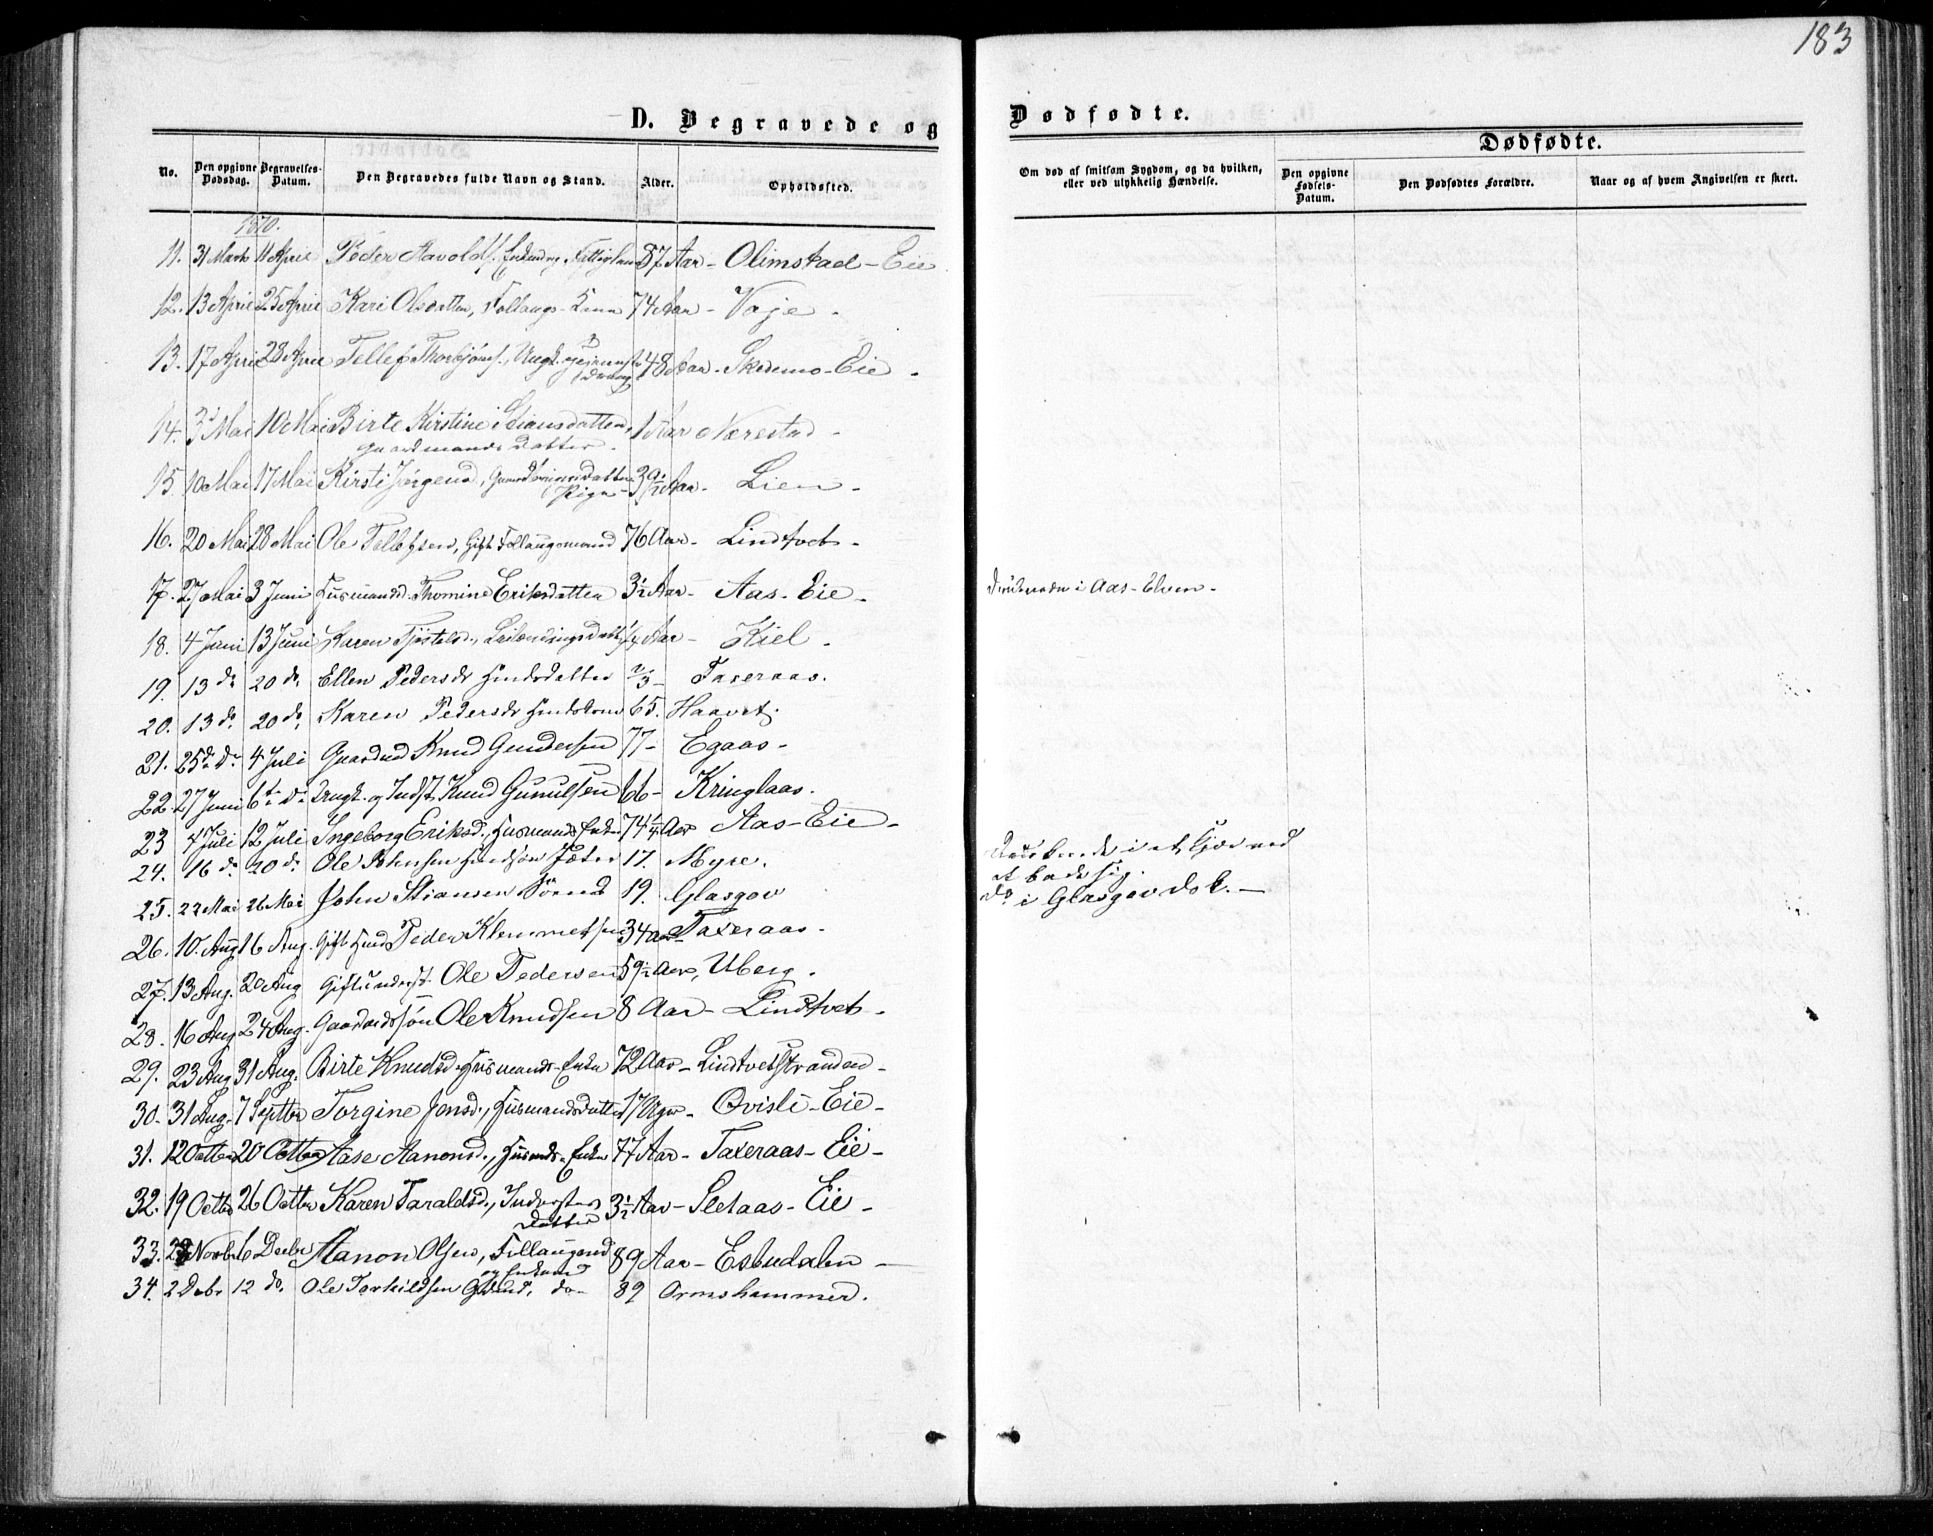 183
D. Begravede og Dødfødte.
Dødfødte.
No. Den opgivne Dødsdag. Begravelses-Datum. Den Begravedes fulde Navn og Stand. Alder. Opholdssted. Om død af smitsom Sygdom, og da hvilken, eller ved ulykkelig Hændelse. Den opgivne Fødsels-Datum. Den Dødfødtes Forældre. Naar og af hvem Angivelsen er skeet.
1870.
11. 31 Marts 11 April Peder Aavolds. 87 Aar - Olimstad - Eie
12. 13 April 25 April Kari Olsdatter, Follaugs-Kone 74 Aar - Vaje -
13. 17 April 28 April Tellef Thorbjørns., Ungk. 48 Aar - Skedemo-Eie -
14. 3 Mai 10 Mai Birte Kirstine Stiansdatter, 1 Aar Nærestad -
Gaardmands Datter -
15. 10 Mai 17 Mai Kirsti Jørgensd., 39 1/2 Aar - Lien -
Pige
16. 20 Mai 28 Mai Ole Tellefsen, Gift Follaugsmand 76 Aar - Lindtvet -
17. 27 Mai 3 Juni Husmandsd. Thomine Eriksdatter 3 1/2 Aar - Aas-Eie - Druknede i Aas-Elven -
18. 4 Juni 13 Juni Karen Tjøstelsd., Leilændings Datt. 1/4 Aar - Kiel -
19. 13 do 20 do Ellen Pedersdr Husmdsdatter 2/3 - Taxeraas.
20. 13 do 20 do Karen Pedersdr Husmdskone 65. Haavet.
21. 25de do 4 Juli Gaardmd Knud Gundersen 77 - Egaas -
22. 27 Juni 6te do Ungk. og Indst. Knud Gunulfsen 66 - Kringlaas.
23 4 Juli 12 Juli Ingeborg Eriksd., Husmands Enke 74 1/4 Aar Aas-Eie -
24. 16 do 20 do Ole Johnsen 17. Myre. Druknede i et Kjær ved
at bade sig.
25. 22 Mai 26 Mai John Stiansen Sømd 19. Glasgov do i Glasgov Dok. -
26. 10. Aug 16 Aug. Gift Husmd Peder Klemmetsen 34 Aar - Taxeraas -
27. 13 Aug. 20 Aug Gift Inderst Ole Pedersen 59 1/2 Aar, Uberg.
28. 16 Aug 24 Aug. Gaardmdssøn Ole Knudsen 8 Aar - Lindtvet -
29. 23 Aug 31 Aug. Birte Knudsd. Husmands-Enke 72 Aar - Lindtvetstranden -
30. 31 Aug. 7 Septbr Torgine Jensd., Husmandsdatter 17 Uger - Qvisli-Eie -
31. 12 Octbr 20 Octbr Aase Aanonsd., Husmds-Enke 77 Aar - Taxeraas-Eie -
32. 19 Octbr 26 Octbr Karen Taraldsd., Inderstes 3 1/2 Aar - Seldaas-Eie -
Datter
33. 28 Novbr 6 Decbr Aanon Olsen, Follaugsmd 89 Aar - Esbudalen -
og Enkemd
34. 2 Debr 12 do. Ole Torkildsen Gdmd, do - 89 Ormshammer.